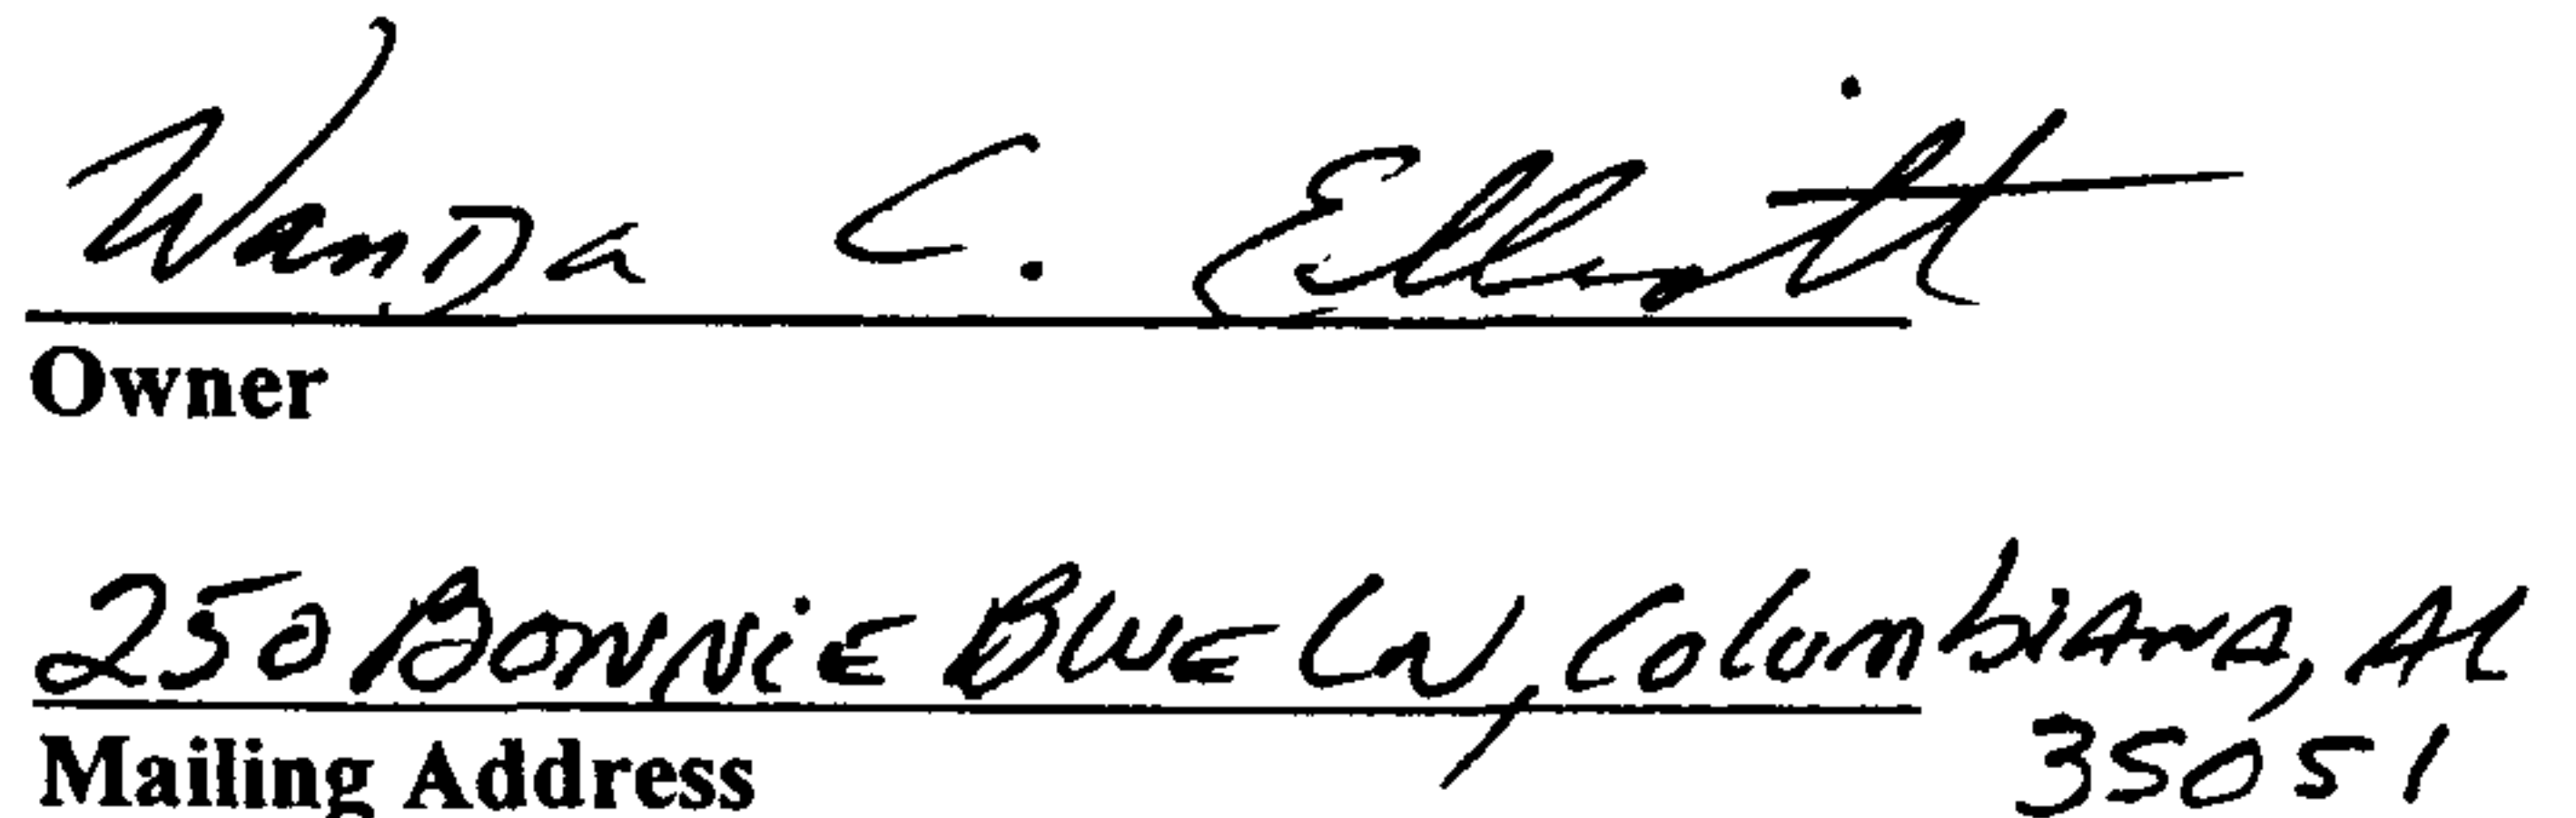 Wanda C. Elliott
Owner
250 Bonnie Blue Ln, Columbiana, AL
35051
Mailing Address